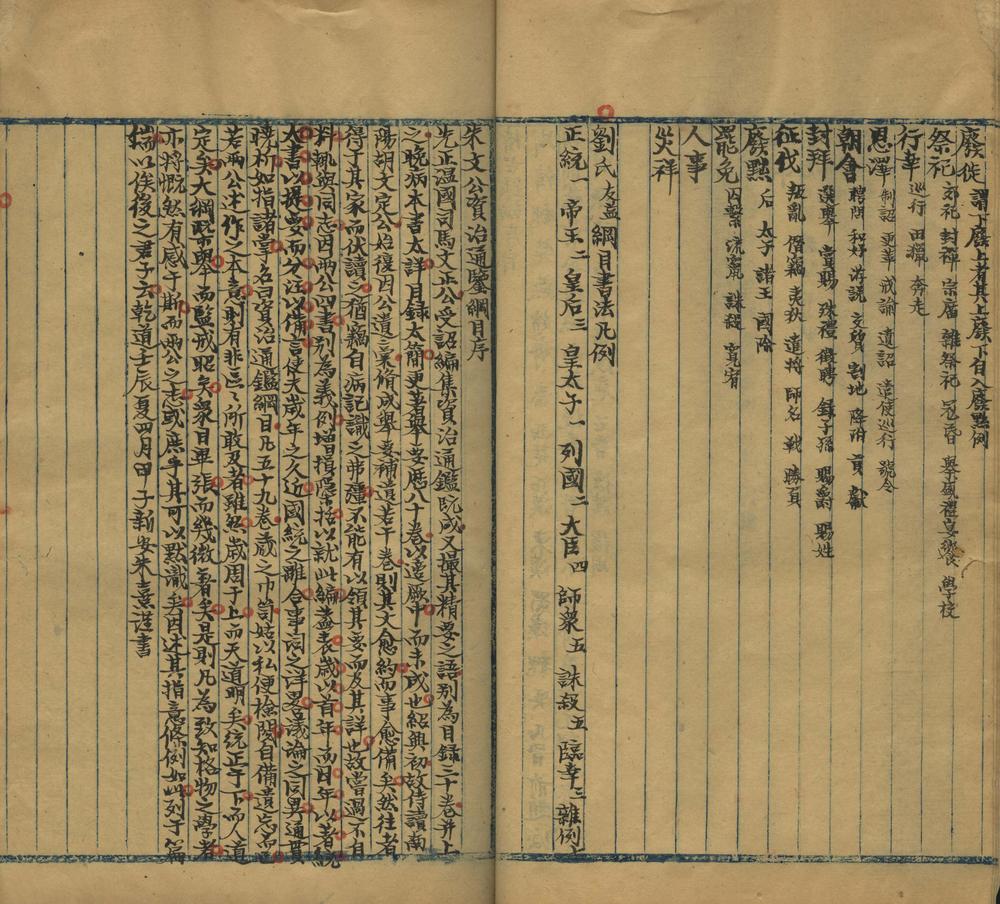 廢徙 謂下廢上者其上廢下自入廢黜例
祭祀 郊祀 封禪 宗廟 雜祭祀 冠昏 舉盛禮宴饗 學校
行幸 巡行 田獵 奔走
恩澤 制詔 更革 戒諭 遺詔 遣使巡行 號令
朝會 聘問 和好 游說 交質 割地 降附 貢獻
封拜 選舉 賞賜 殊禮 徵聘 錄子孫 賜爵 賜姓
征伐 叛亂 僭竊 夷狄 遣將 師名 戰 勝負
廢黜 后 太子 諸王 國除
罷免 囚繫 流竄 誅殺 寬宥
人事
災祥
劉氏友益綱目書法凡例
正統一 帝王二 皇后三 皇太子一 列國二 大臣四 師衆五 誅殺五 臨幸三 雜例上
朱文公資治通鑒綱目序
先正溫國司馬文正公受詔編集資治通鑑既成又撮其精要之語別為目錄三十卷并上
之晚病本書太詳目錄太簡更著舉要歷八十卷以適厥中而未成也紹興初故侍讀南
陽胡文定公始復因公遺藁脩成舉要補遺若干卷則其文愈約而事愈備矣然往者
得于其家而伏讀之猶竊自病記識之弗彊不能有以領其要而及其詳也故嘗過不自
料輒與同志因兩公四書別為義例增損檃括以就此編蓋表歲以首年而因年以著統
大書以提要而分注以備言使夫歲年之久近國統之離合事詞之詳畧議論之同異通貫
曉析如指諸掌名曰資治通鑑綱目凡五十九卷藏之巾笥姑以私便檢閱自備遺忘而已
若兩公述作之本意則有非區々所敢及者雖然歲周于上而天道明矣統正于下而人道
定矣大綱槩舉而監戒昭矣衆目畢張而幾微著矣是則凡為致知格物之學者
亦將慨然有感于斯而兩公之志或庶乎其可以默識矣因述其指意條例如此列于篇
端以俟後之君子云乾道壬辰夏四月甲子新安朱熹謹書